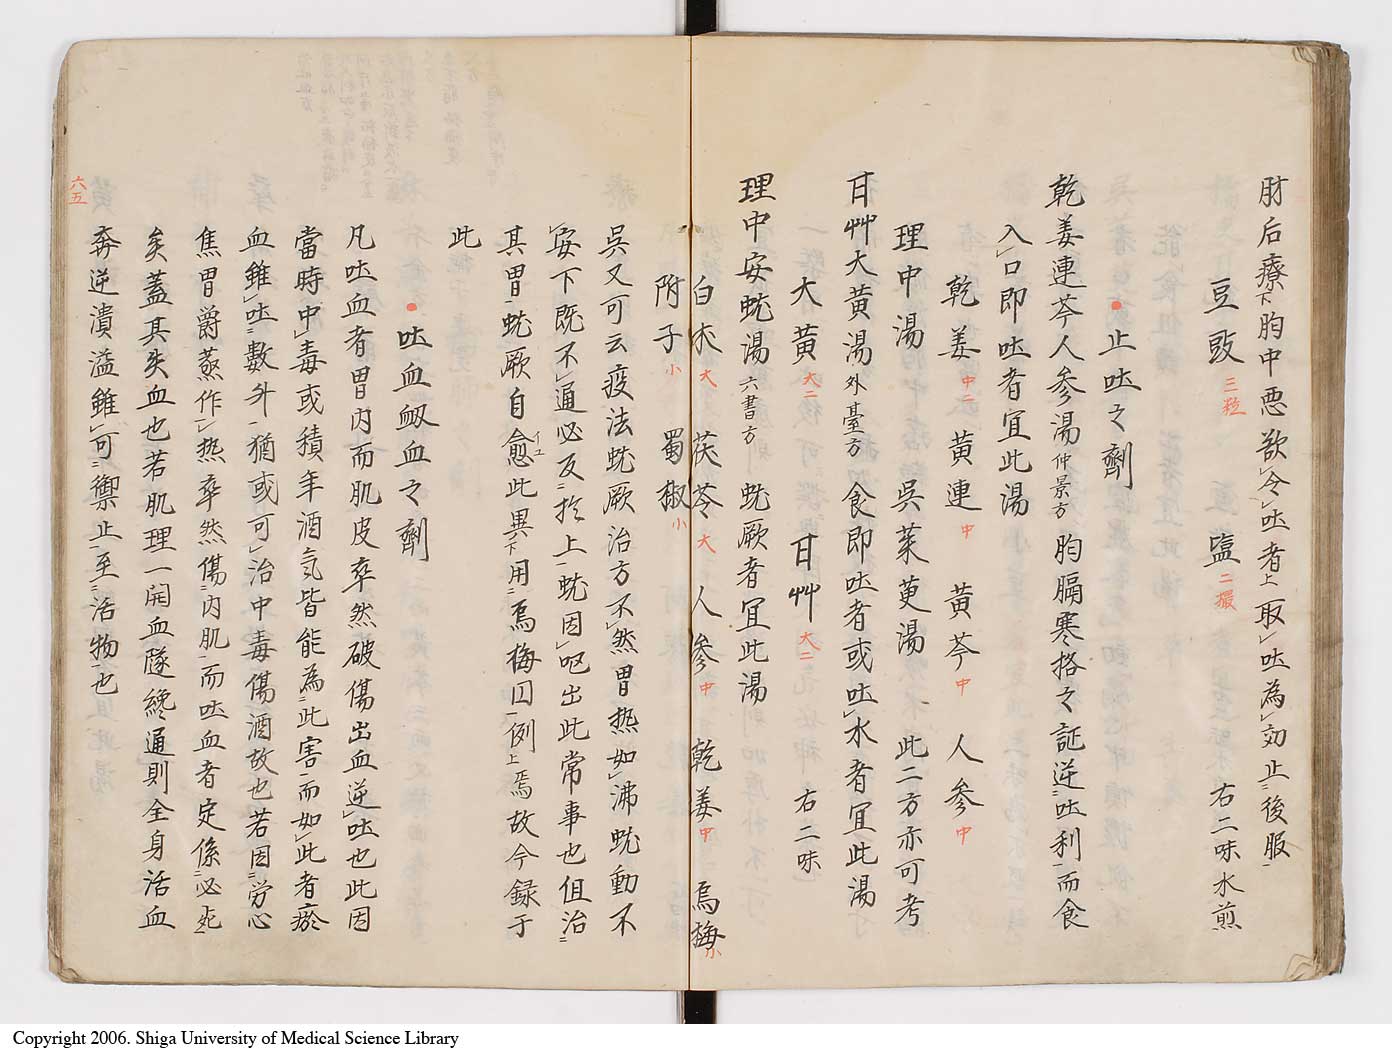 肘后療下胸中悪欲令吐者上取吐為効止後服
豆豉三粒 塩二撮 右二味水煎
●止吐之劑
乾姜連芩人参湯仲景方 胸膈寒格之証逆吐利而食
入口即吐者宜此湯
乾姜中二 黄連中 黄芩中 人参中
理中湯 呉茱萸湯 此二方亦可考
甘艸大黄湯外臺方 食即吐者或吐水者宜此湯
大黄大二 甘艸大二 右二味
理中安蚘湯六書方 蚘厥者宜此湯
白朮大 茯苓大 人参中 乾姜中 烏梅小
附子小 蜀椒小
呉又可云疫法蚘厥治方不然胃热如沸蚘動不
安下既不通必反於上蚘因嘔出此常事也但治
其胃蚘厥自愈イユ此異下用烏梅囚例上焉故今録于
此
●吐血衂血之劑
凡吐血者胃内而肌皮卒然破傷出血逆吐也此因
當時中毒或積年酒気皆能為此害而如此者瘀
血雖吐数升猶或可治中毒傷酒故也若因労心
焦胃爵蒸作热卒然傷内肌而吐血者定係必死
矣蓋其失血也若肌理一開血隧纔通則全身活血
奔逆潰溢雖可禦止至活物也
六五
Copyright 2006. Shiga University of Medical Science Library